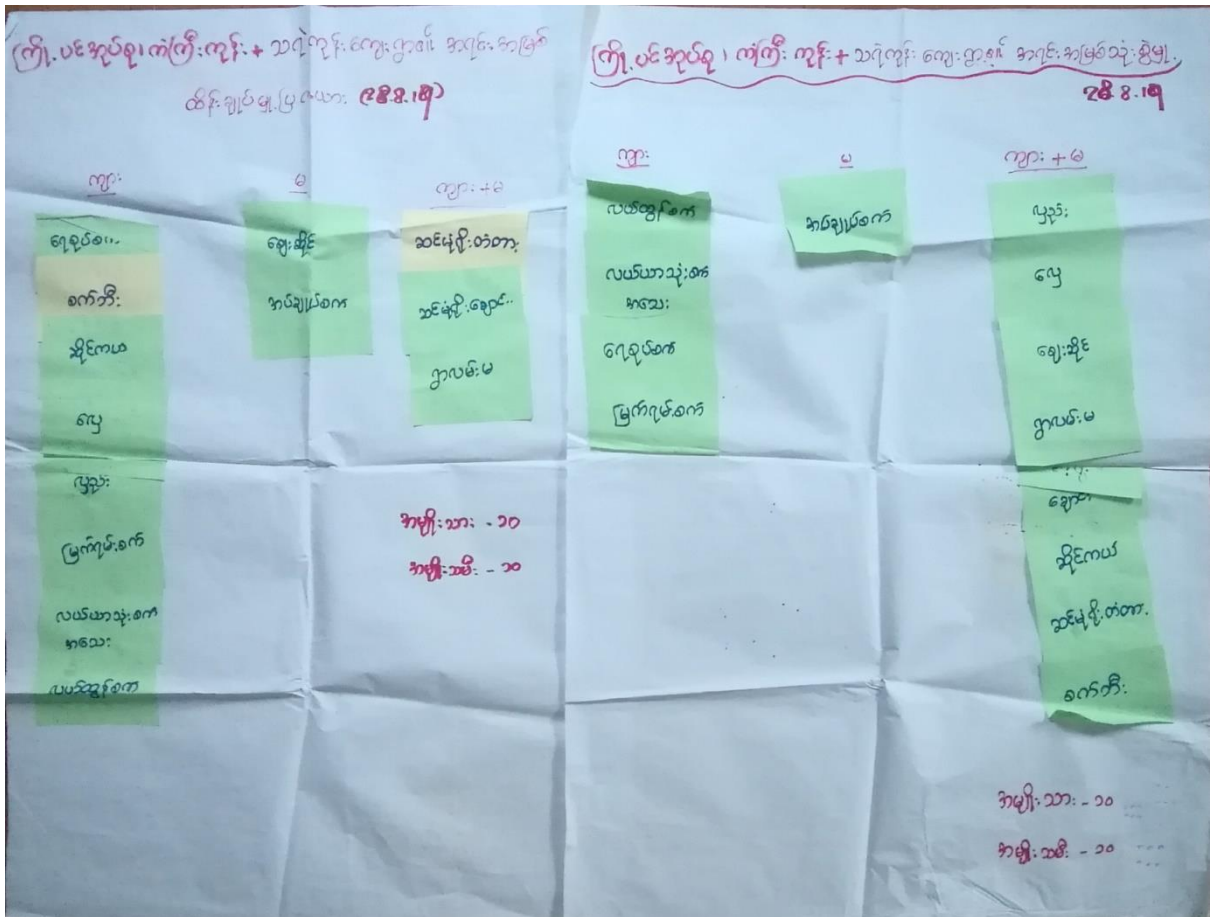 ကြို့ပင်အုပ်စု၊ ကံကြီးကုန်း + သရဲကုန်း ကျေးရွာစု၏ အရင်းအမြစ်
ထိန်းချုပ်မှုပြဇယား
ကျား
ရေစုပ်စ
စက်ဘီး
ဆိုင်ကယ်
လှေ
လှည်း
မြက်ရမ်းစက်
လယ်ယာသုံးစက်
အသေး
လယ်ထွန်စက်
မ
ဈေးဆိုင်
အပ်ချုပ်စက်
ကျား+မ
ဆင်မံရိုးတံတား
ဆင်မံရိုးချောင်း
ရွာလမ်းမ
အမျိုးသား - ၁၀
အမျိုးသမီး - ၁၀
ကြို့ပင်အုပ်စု၊ ကံကြီးကုန်း + သရဲကုန်း ကျေးရွာစု၏ အရင်းအမြစ်သုံးစွဲမှု
ကျား
လယ်ထွန်စက်
လယ်ယာသုံးစက်
အသေး
ရေစုပ်စက်
မြက်ရမ်းစက်
မ
အပ်ချုပ်စက်
ကျား+မ
လှည်း
လှေ
ဈေးဆိုင်
ရွာလမ်းမ
ချောင်း
ဆိုင်ကယ်
ဆင်မံရိုးတံတား
စက်ဘီး
အမျိုးသား - ၁၀
အမျိုးသမီး - ၁၀